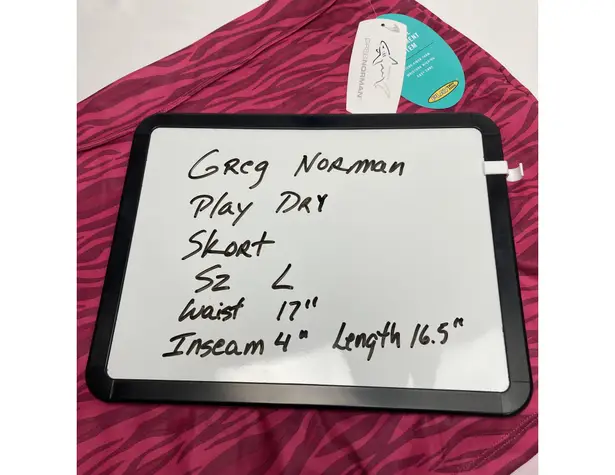 GREG NORMAN
Greg Norman
Play Dry
Skort
Sz L
Waist 17"
Inseam 4" Length 16.5"